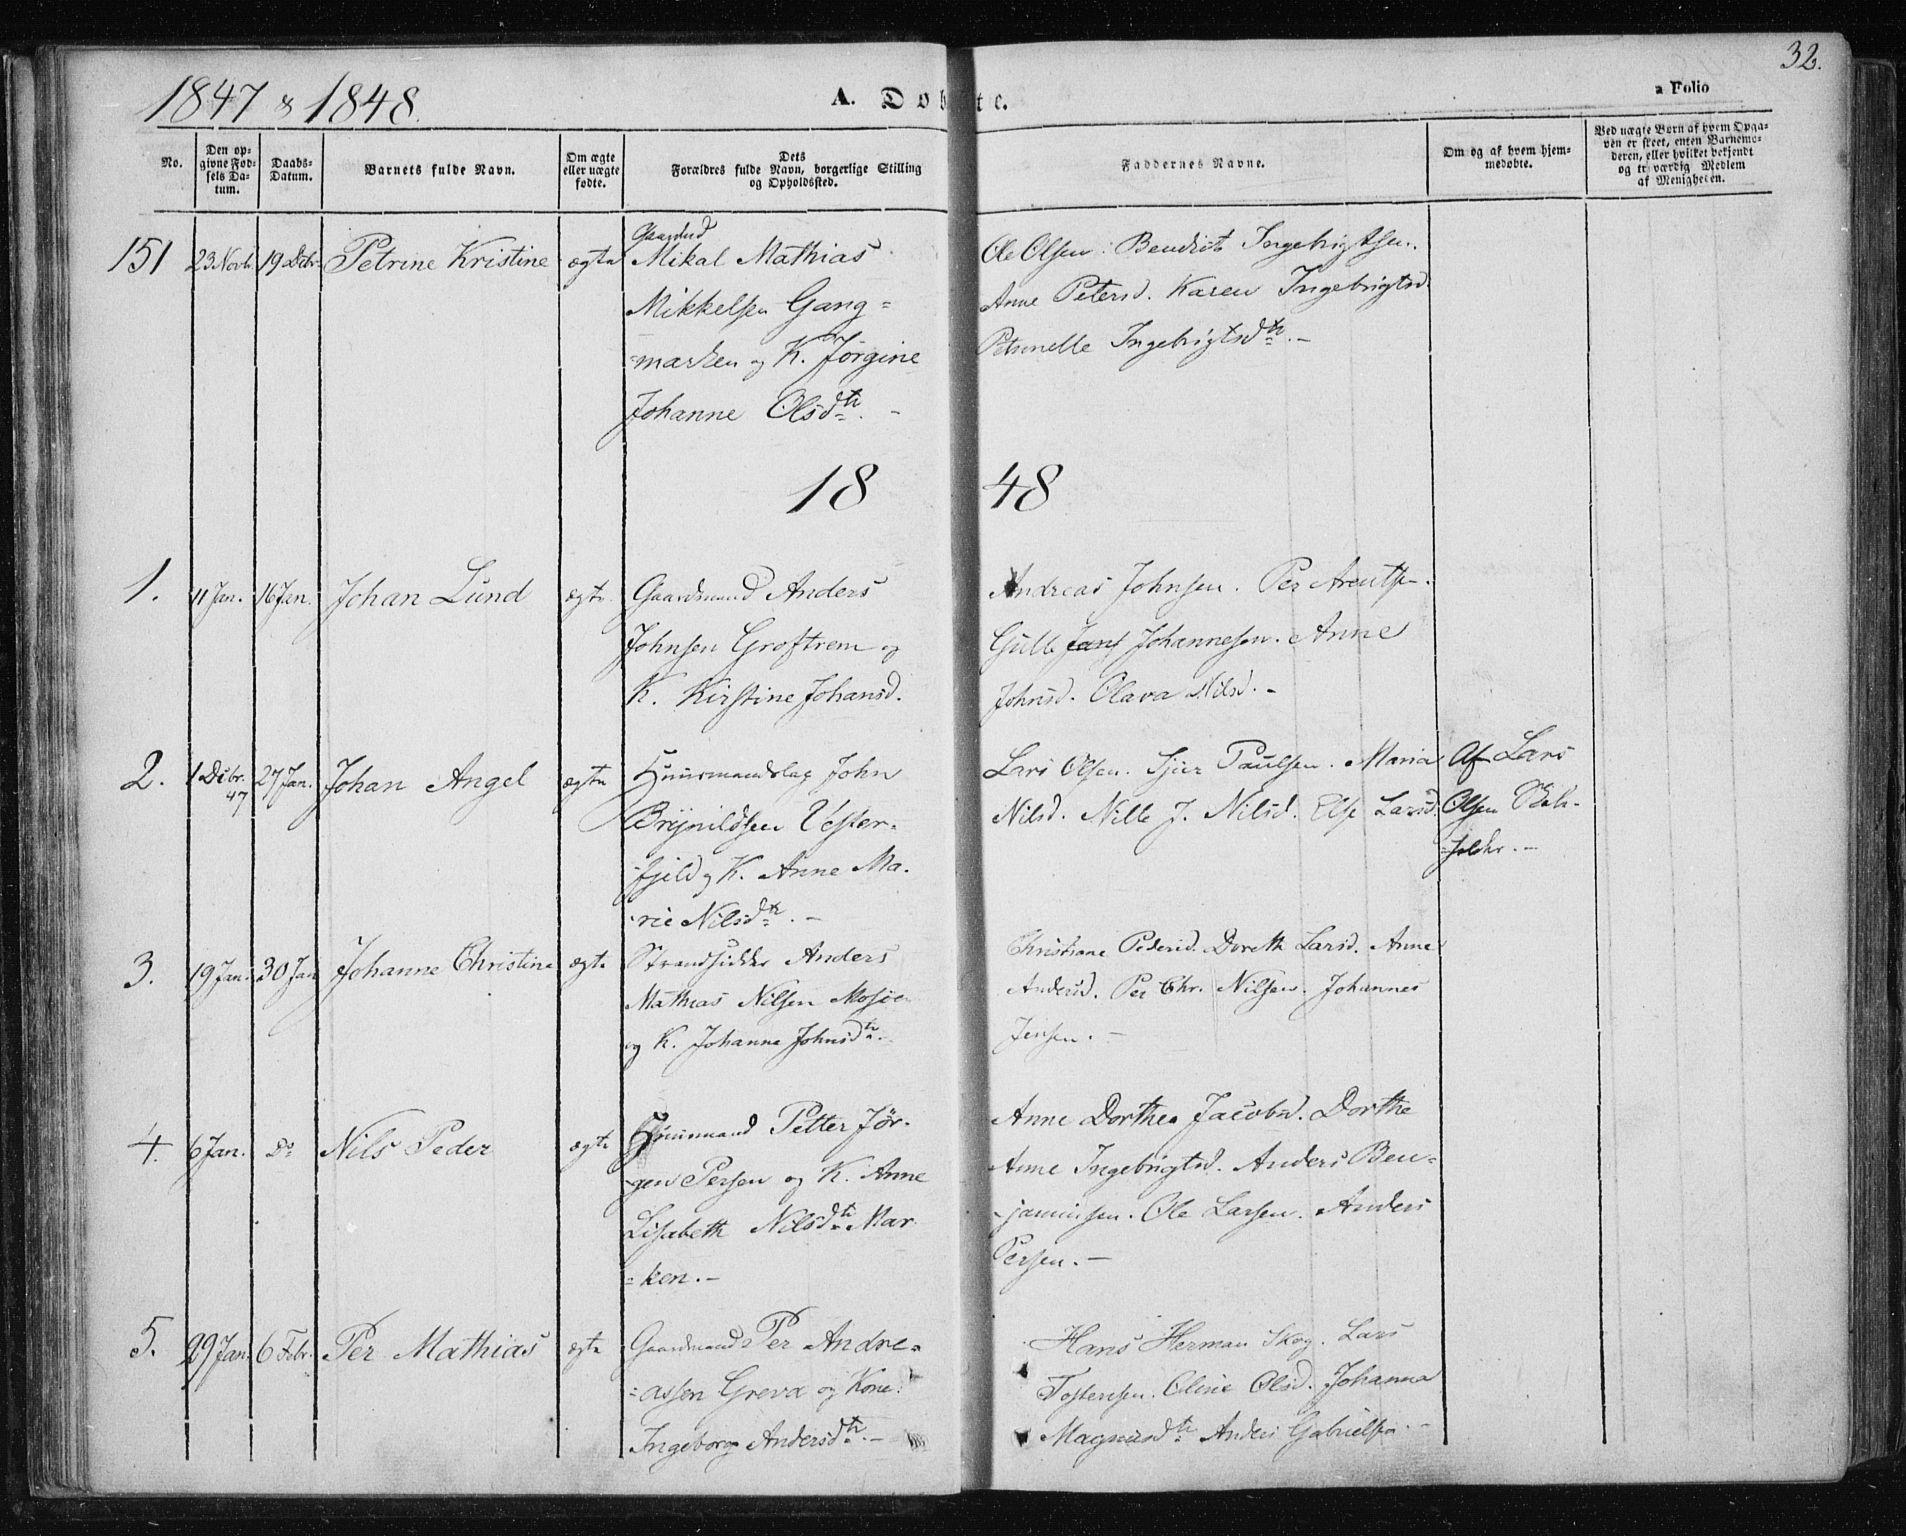 1847 & 1848.
A. Dobte.
a Folio
32.
No.
Den op-
givne Fød-
sels Da-
tum.
Daabs-
Datum.
Barnets fulde Navn.
Om ægte
eller uægte
fødte.
Dets
Forældres fulde Navn, borgerlige Stilling
og Opholdssted.
Faddernes Navne.
Om og af hvem hjem-
medøbte.
Ved uægte Børn af hvem Opga-
ven er skeet, enten Barnemo-
deren, eller hvilket bekjendt
og troværdig Medlem
af Menigheden.
151 23 Novb. 19 Debr. Petrine Kristine ægte
Gaardmd
Mikal Mathias
Mikkelsen Gang=
=marken og K. Jørgine
Johanne Olsdtr. -
Ole Olsen. Bendict Ingebrigtsen.
Anne Petersd. Karen Ingebrigtsd.
Petrnelle Ingebrigtsdtr. -
18 48
1. 11 Jan. 16 Jan. Johan Lund ægte
Gaardmand Anders
Johnsen Groftrem og
K. Kirstine Johansd.
Andreas Johnsen. Per Arentsn.
Gulle Jans Johannesen. Anne
Johnsd. Olava Nilsd. -
2. 1 Debr. 47 27 Jan. Johan Angel ægte
Huusmandslag John
Brynildsen Vester-
-fjeld og K. Anne Ma-
-rie Nilsdtr. -
Lars Olsen. Sjur Paulsen. Maria
Nilsd. Nille J. Nilsd. Else Larsd.
Af Lars
Olsen
3. 19 Jan. 30 Jan Johanne Christine ægte
Strandsidder Anders
Mathias Nilsen Mosjøen
og K. Johanna Johnsdtr.
Christiane Pedersd. Doreth Larsd. Anne
Andersd. Per Chr. Nilsen. Johannes
Jensen. -
4. 6 Jan. Do Nils Peder ægte
Huusmand Petter Jør-
-gen Persen og K. Anne
Lisabeth Nilsdtr. Mar
=ken. -
Anne Dorthea Jacobsd. Dorthe
Anne Ingebrigtsd. Anders Ben=
-jaminsen. Ole Larsen. Anders
Persen. -
5. 29 Jan. 6 Febr. Per Mathias ægte
Gaardmand Per Andre=
=assen Greva og Kone
Ingeborg Andersdtr. -
Hans Herman Skog. Lars
Tostensen. Oline Olsd. Johanna
Magnusdtr. Anders Gabrielsn. -